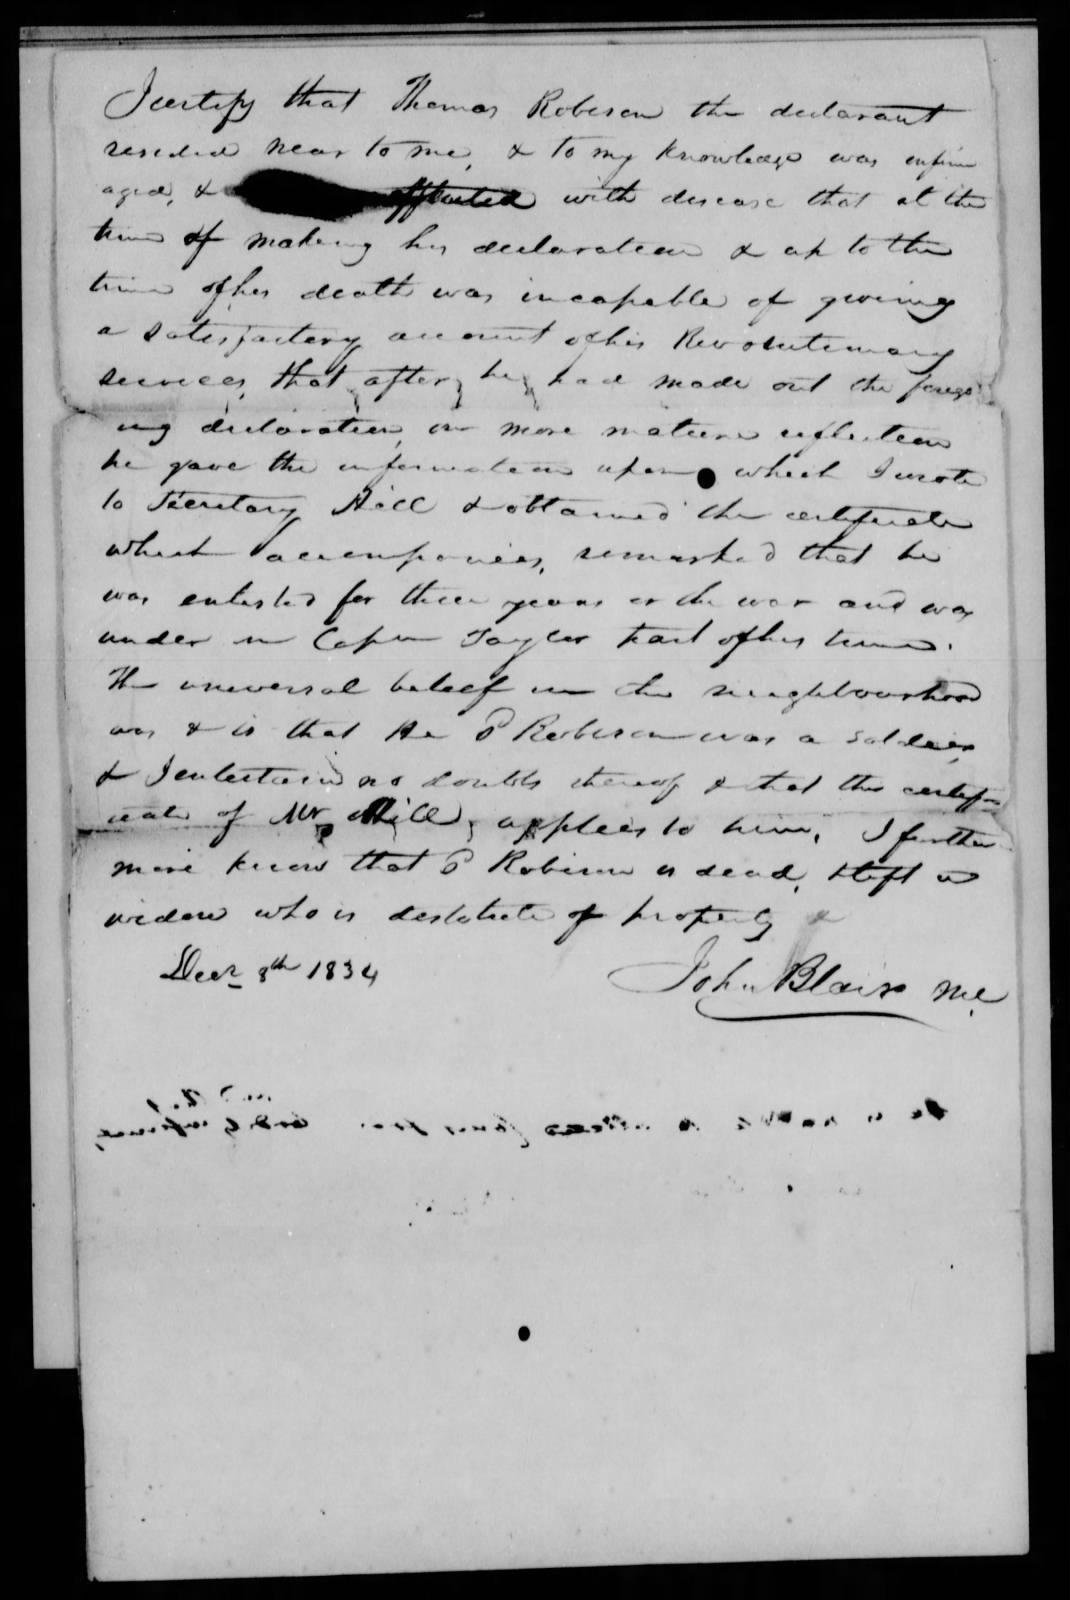 I certify that Thomas Robison the declarant
resided near to me, & to my knowledge was infirm
aged, & afflicted with disease that at the
time of making his declaration & up to the
time of his death was incapable of giving
a satisfactory account of his Revolutionary
services, that after he had made out the forego
ing declaration, on more mature reflection
he gave the information upon which I wrote
to Secretary Hill & obtained the certificate
which accompanies, remarked that he
was enlisted for three years or the war and was
under a Captn Taylor part of his time.
The universal belief in the neighbourhood
was & is that He Sd Robison was a soldier,
& I entertain no doubts thereof & that the certifi
cate of Mr Hill, applies to him, I further
more know that Sd Robison is dead, & left a
widow who is destitute of property &
Decr 8th 1834
John Blair